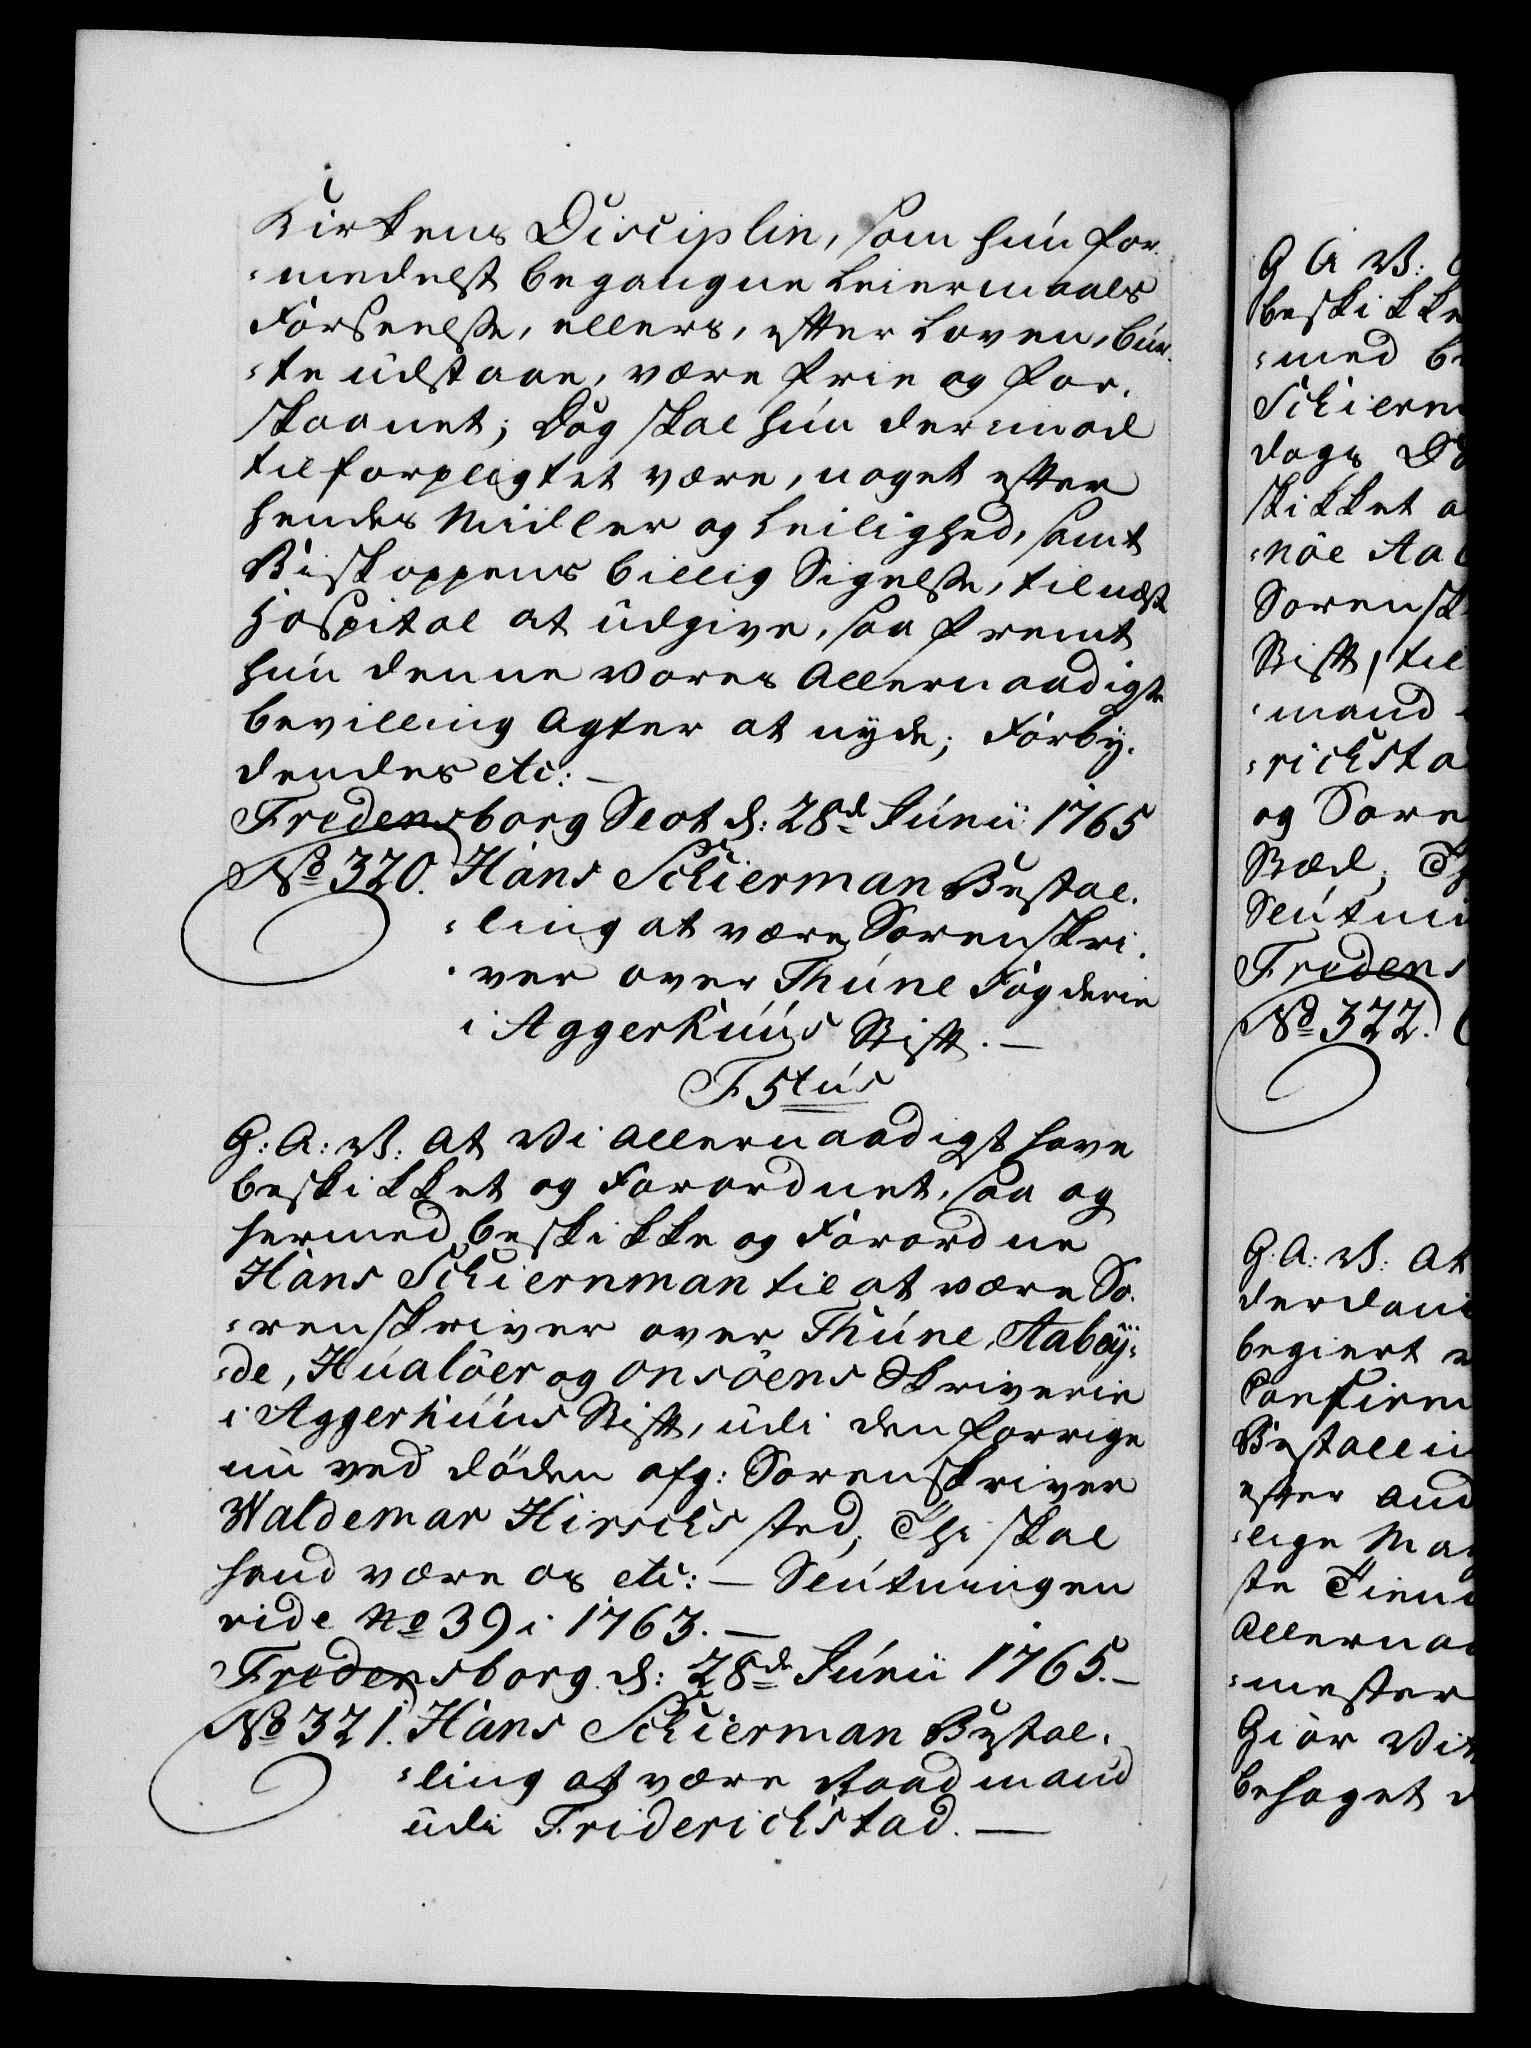 Kirkens Disciplin, som hun for-
-medelst begangne Leiermaals
Forseelse, ellers, efter Loven, bur-
-te udstaae, være frie og for-
skaanet; Dog skal hun derimod
tilforpligtet være, noget efter
hendes Midler og Leilighed, samt
Biskoppens billig Sigelse, til næste
Hospital at udgive, saa fremt
hun denne vores Allernaadigste
bevilling Agter at nyde; Forby-
dendes etc: —
Fredensborg Slot d: 28de Junii 1765
No 320. Hans Schierman Bestal-
-ling at være Sorenskri-
-ver over Thune Fogderie
i Aggerhuus Stift. —
F. 5tus
G: A: V: At Vi Allernaadigst have
beskikket og Forordnet, saa og
hermed beskikke og Forordne
Hans Schiernman til at være So-
-renskriver over Thune, Aabÿ-
-de, Hualöer og Onsöens Skriverie
i Aggerhuus Stift, udi den forrige
nu ved döden afg: Sorenskriver
Waldemar Hirschs sted; Thi skal
hand være os etc: — Slutningen
vide No 39 i 1763. —
Fredensborg d: 28de Junii 1765. —
No 321. Hans Schierman Bestal-
-ling at være Raadmand
udi Friderichstad. —
G A V:
beskikke
-med be
Schierm
dags D
skikket a
-nöe Aab
Sorensk
Stift, til
-mand
-richsta
og Sore
Sted; Th
Slutni
Fredens
No 322.
G. A: V: At
derdani
begiert
Confirm
Bestalli
efter And
-lige Ma
ste Tien
Allernaa
-mester
Giör Vit
behaget d